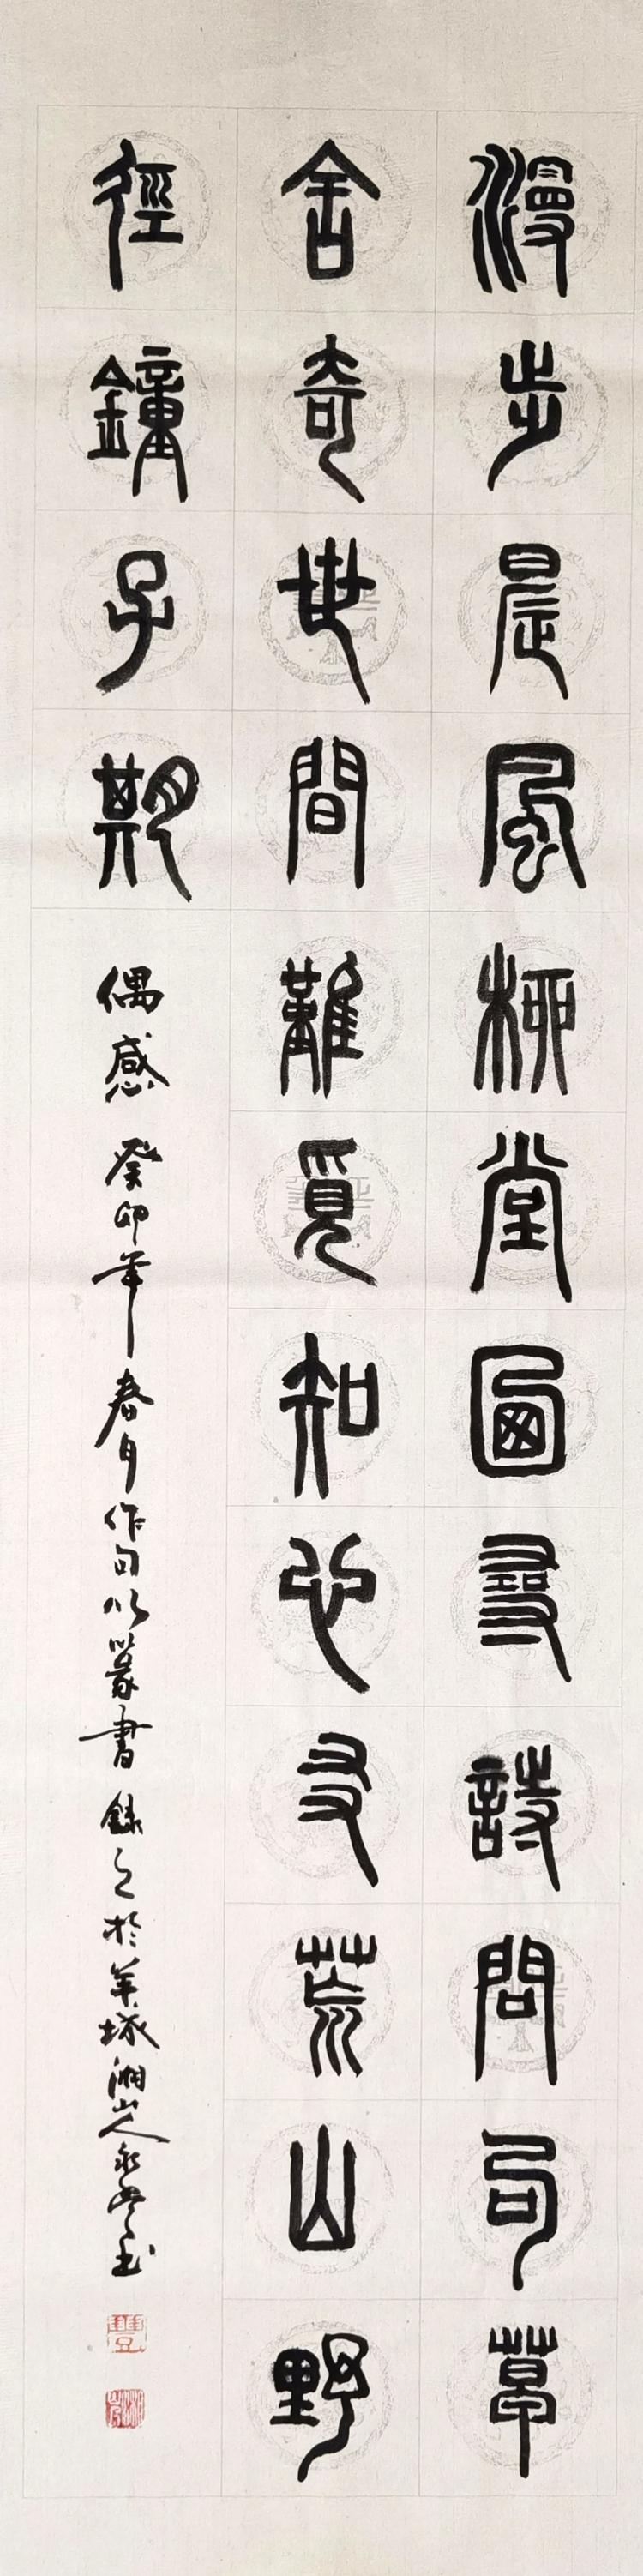 漫步晨風柳堂圖尋詩問句草
舍奇世間難覓知心友荒山野
徑鐘子期
偶感 癸卯年春月作句以篆書錄之於羊城湘山人